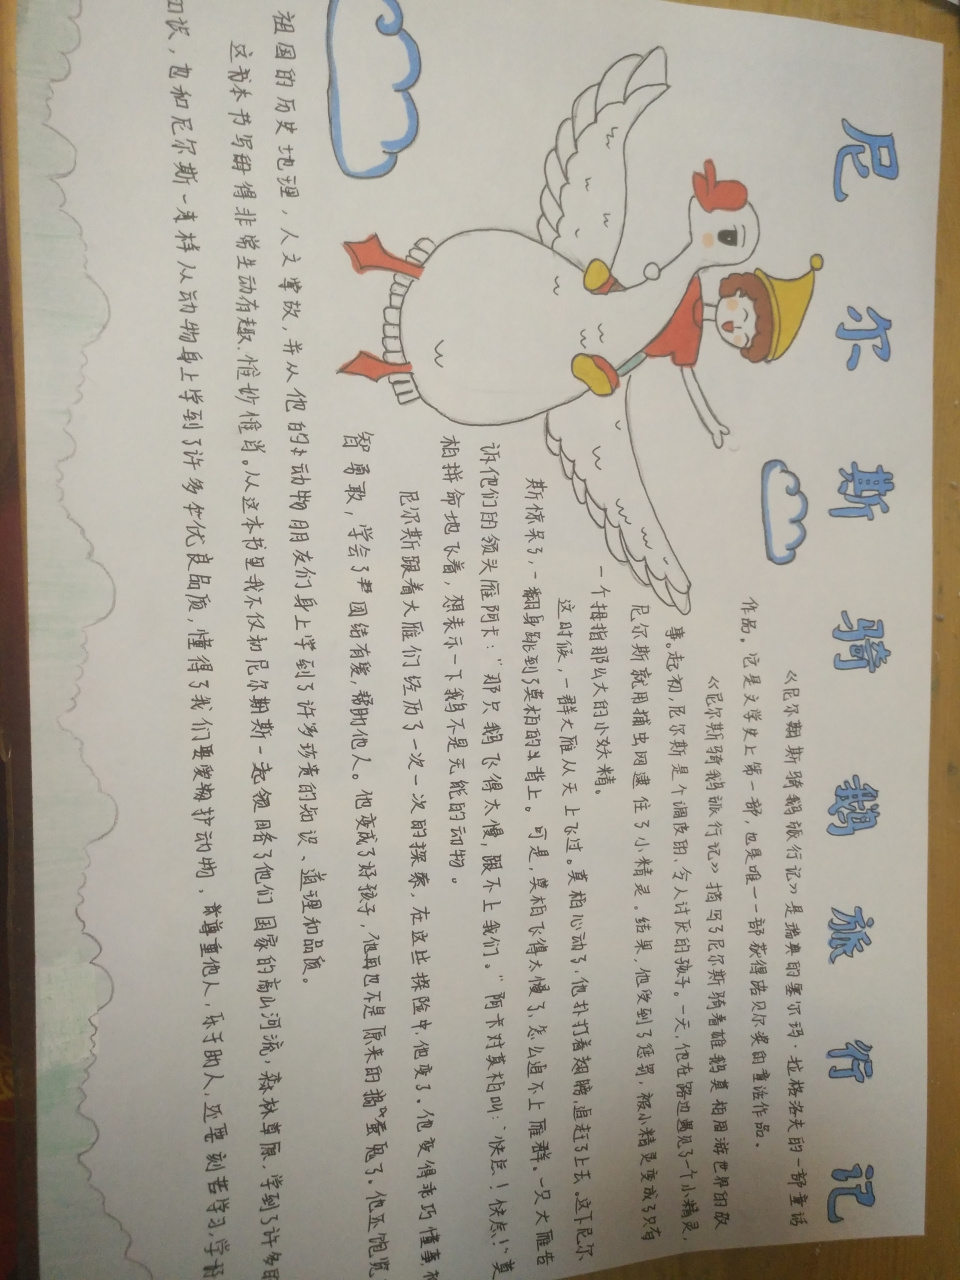 尼尔斯骑鹅旅行记
《尼尔斯骑鹅旅行记》是瑞典的塞尔玛·拉格洛夫的一部童话
作品。它是文学史上第一部,也是唯一一部获得诺贝尔奖的童话作品。
《尼尔斯骑鹅旅行记》描写了尼尔斯骑着雄鹅莫相周游世界的故
事。起初,尼尔斯是个调皮的、令人讨厌的孩子。一天,他在路边遇见了一个小精灵,
尼尔斯就用捕虫网逮住了小精灵。结果,他受到了惩罚,被小精灵变成了只有
一个拇指那么大的小妖精。
这时候,一群大雁从天上飞过。莫相心动了,他扑打着翅膀,追赶了上去。这下尼尔
斯惊呆了,一翻身跳到了莫相的背上。可是,莫相飞得太慢了,怎么追不上雁群。一只大雁告
诉他们的领头雁阿卡:“那只鹅飞得太慢,跟不上我们。”阿卡对莫相叫:“快点!快点!”莫
相拼命地飞着,想表示一下我鹅不是无能的动物。
尼尔斯跟着大雁们经历了一次一次的探索,在这些探险中,他变了。他变得乖巧懂事,机
智勇敢,学会了团结有爱,帮助他人。他变成了好孩子,他再也不是原来的捣蛋鬼了。他还饱览
祖国的历史地理,人文掌故,并从他的小动物朋友们身上学到了许多珍贵的知识、道理和品质。
这本书写得非常生动有趣,惟妙惟肖。从这本书里我不仅和尼尔斯一起领略了他们国家的高山河流,森林草原,学到了许多
知识,也和尼尔斯一样从动物身上学到了许多优良品质,懂得了我们要爱护动物,尊重他人,乐于助人,还要刻苦学习,学好